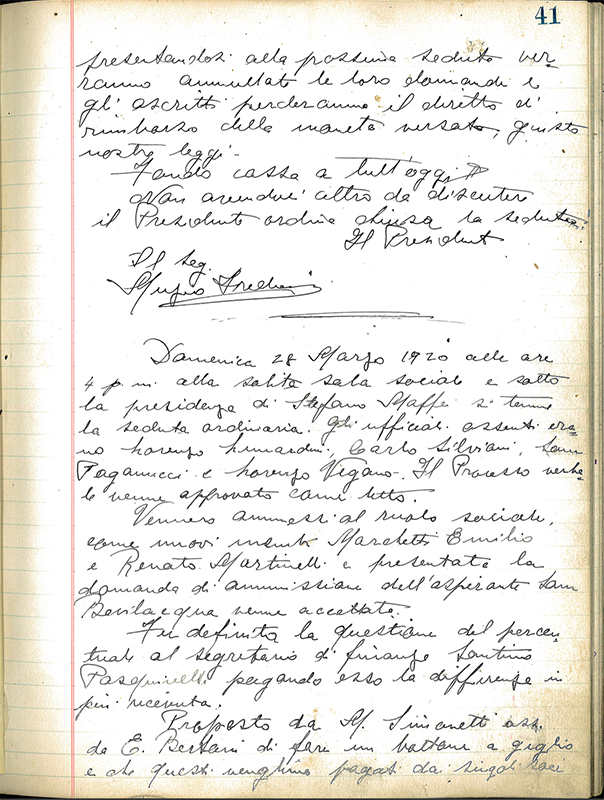 41
presentandosi alla prossima seduta ver-
ranno annullate le loro domande e
gl'ascritti perderanno il diritto di
rimborso della moneta versata, giusto
nostre leggi.
Fondo cassa a tutt'oggi $
Non avendovi altro da discutere
il Presidente ordina chiusa la seduta.
Il President
Il Seg.
Domenica 28 Marzo 1920 alle ore
4 p.m. alla solita sala sociale e sotto
la presidenza di Stefano Maffei si tenne
la seduta ordinaria. Gli ufficiali assenti era-
no Lorenzo Lunardini, Carlo Silviani, Sam
Paganucci e Lorenzo Vegano. Il Processo verba-
le venne approvato come letto.
Vennero ammessi al ruolo sociale,
come nuovi membri Marchetti Emilio
e Renato Martinelli e presentata la
domanda di ammissione dell'aspirante Sam
Bevilacqua venne accettata.
Fu definita la questione del percen-
tuale al segretario di finanze Santino
Pasquinelli pagando esso la differenza in
più ricevuta.
Proposto da M. Simonetti ass.
da E. Bertani di fare un bottone a giglio
e che questi venghino pagati dai singoli soci